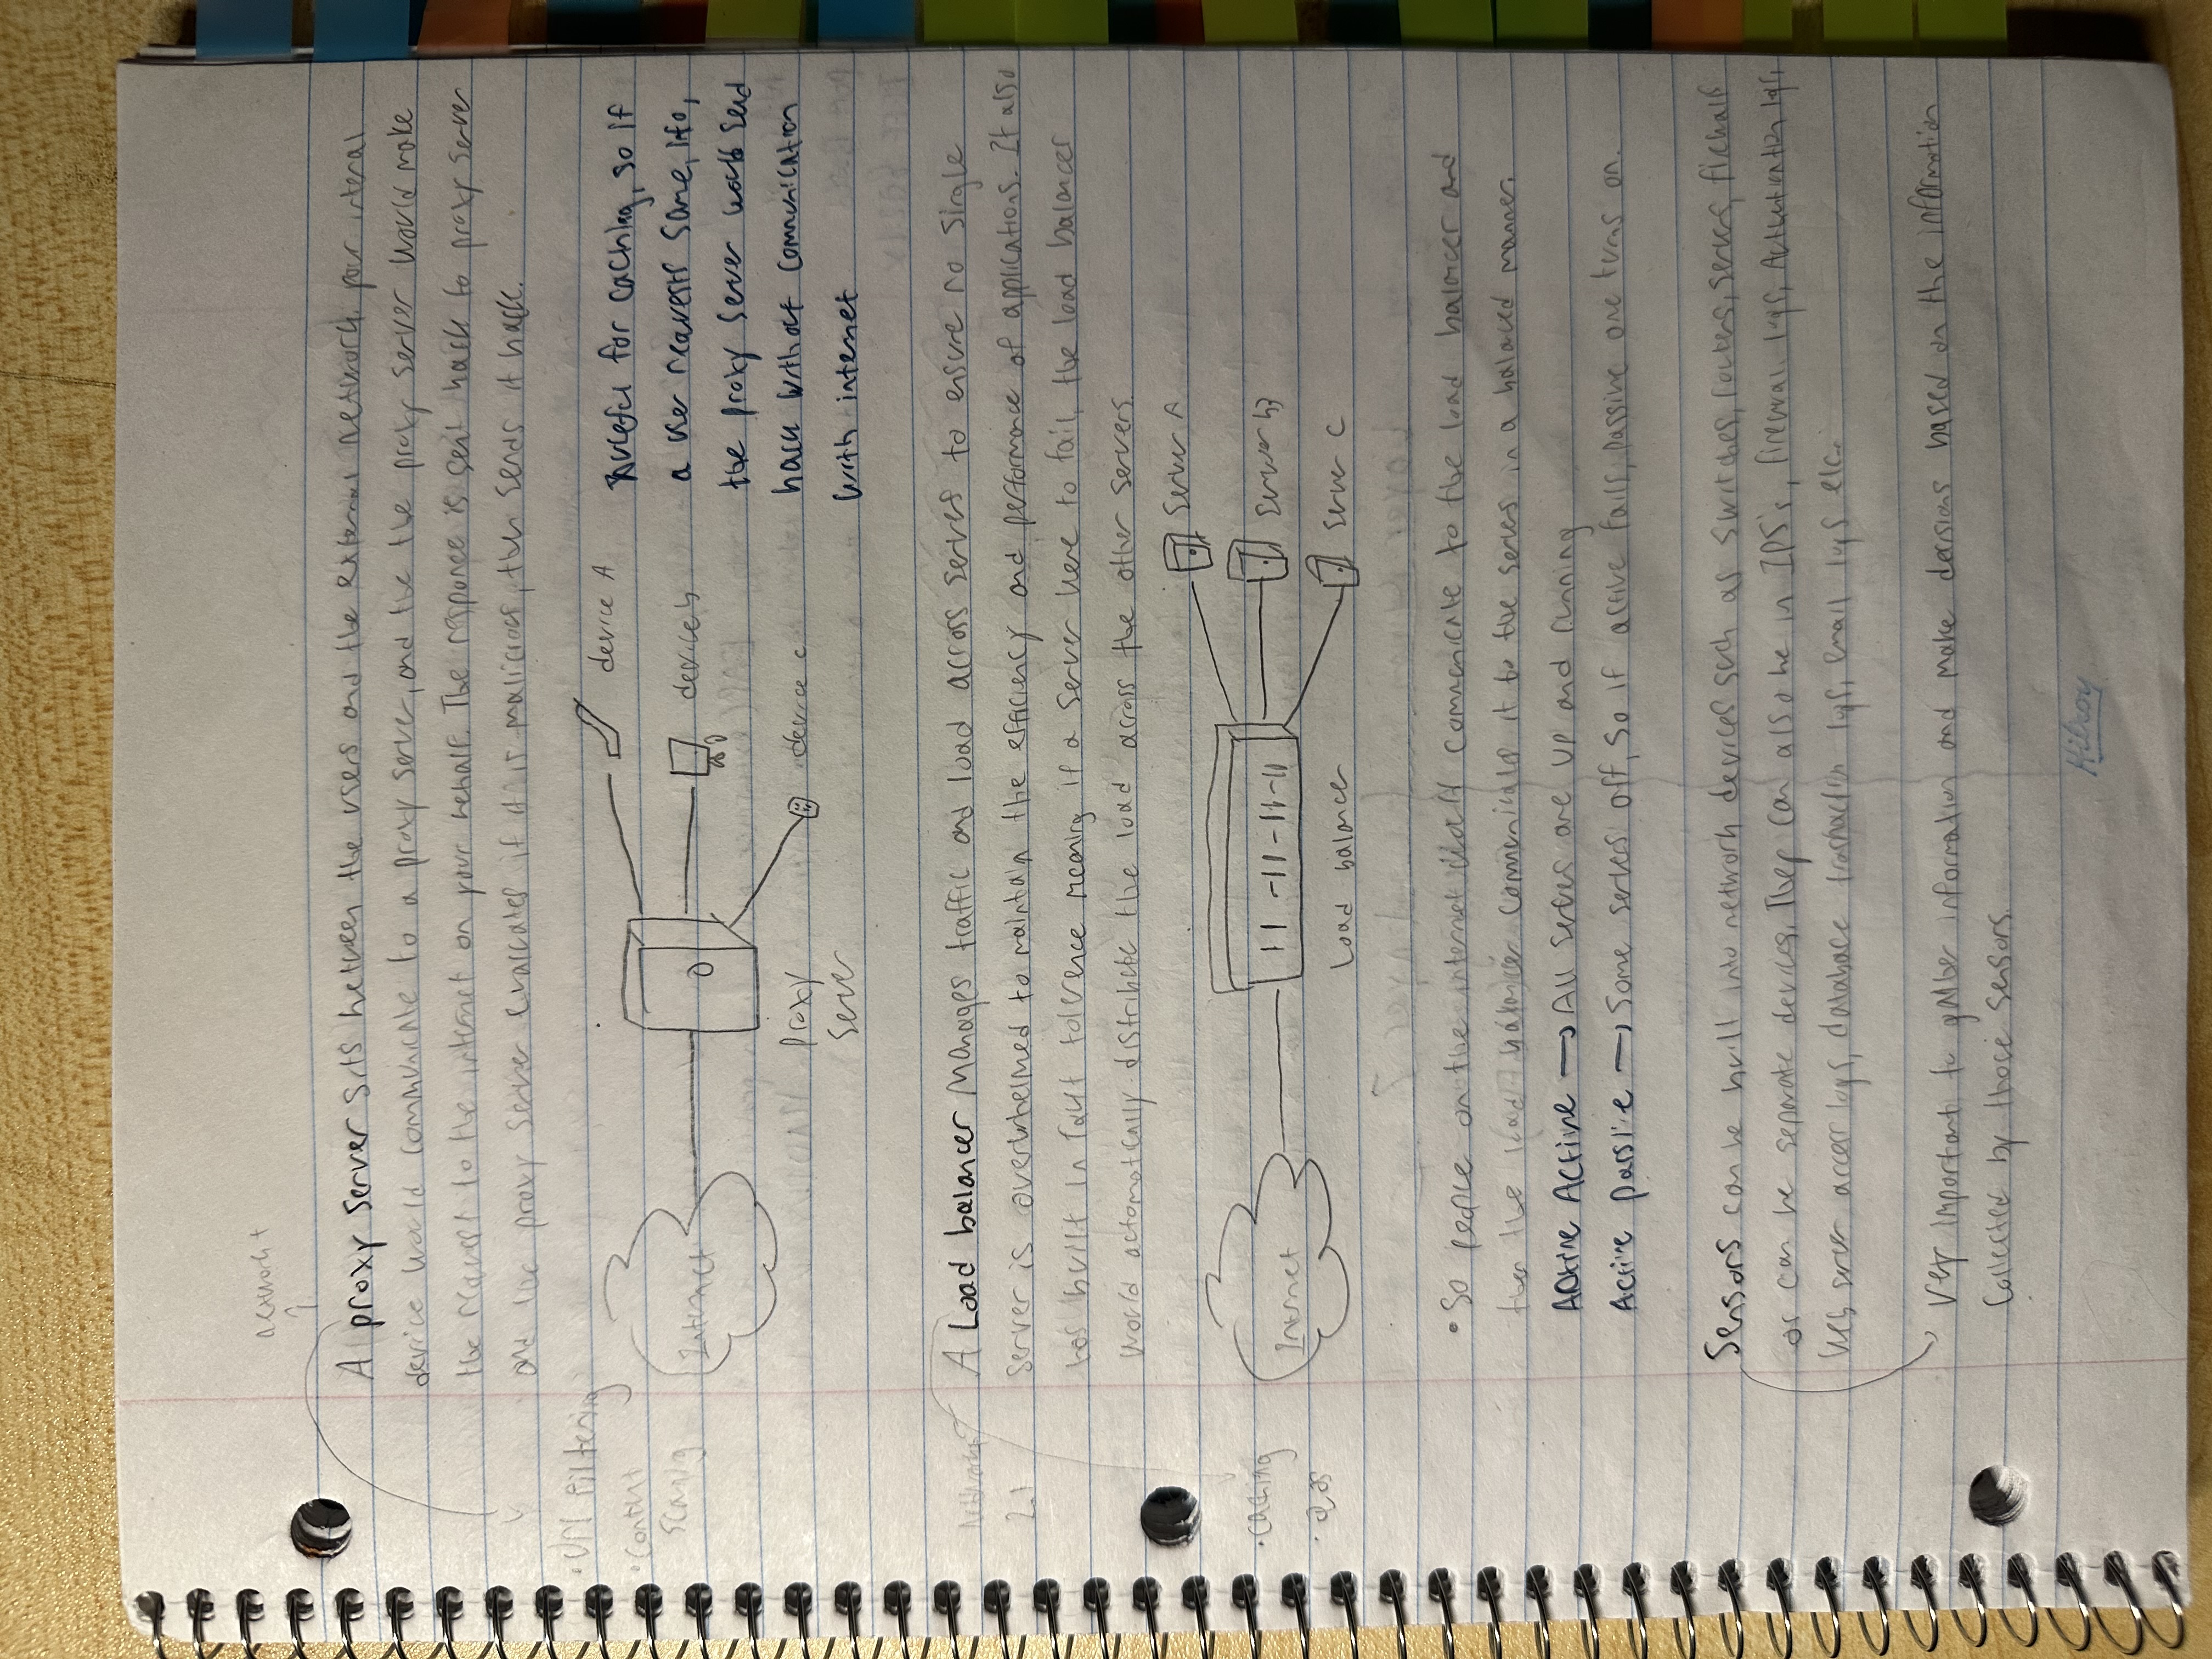 network +
A proxy server sits between the users and the external network. your interal
device would communicate to a proxy server, and the the proxy server would make
the request to the internet on your behalf. The responce is sent back to proxy server
and the proxy server evaluates if it is malicious, then sends it back.
• URL filtering
• Content
Scanig
Internet
Proxy
Server
device A
device b
device c
useful for caching, so if
a user requests same, ifo,
the proxy server would send
back without communication
with internet
Network+
2.1
A Load balancer Manages traffic and load across servers to ensure no single
server is overwhelmed to maintain the efficiency and performance of applications. It also
has built in fault tolerence meaning if a server were to fail, the load balancer
would automatically distribute the load across the other servers.
• caching
• QoS
Internet
Load balancer
Server A
Server b
Server C
• So people on the internet communicate to the load balancer and
then the load balancer communicates it to the serves in a balaced manner.
Active Active → All serves are up and running
Active passive → Some servers off, so if active fails, passive one turns on.
Sensors can be built into network devices such as switches, routers, servers,
or can be separate devices. They can also be in IPS's, firewall logs, Authentication logs,
web server access logs, database transaction logs, email logs etc..
very important to gather information and make decisions based on the information
collected by those sensors.
Hilroy